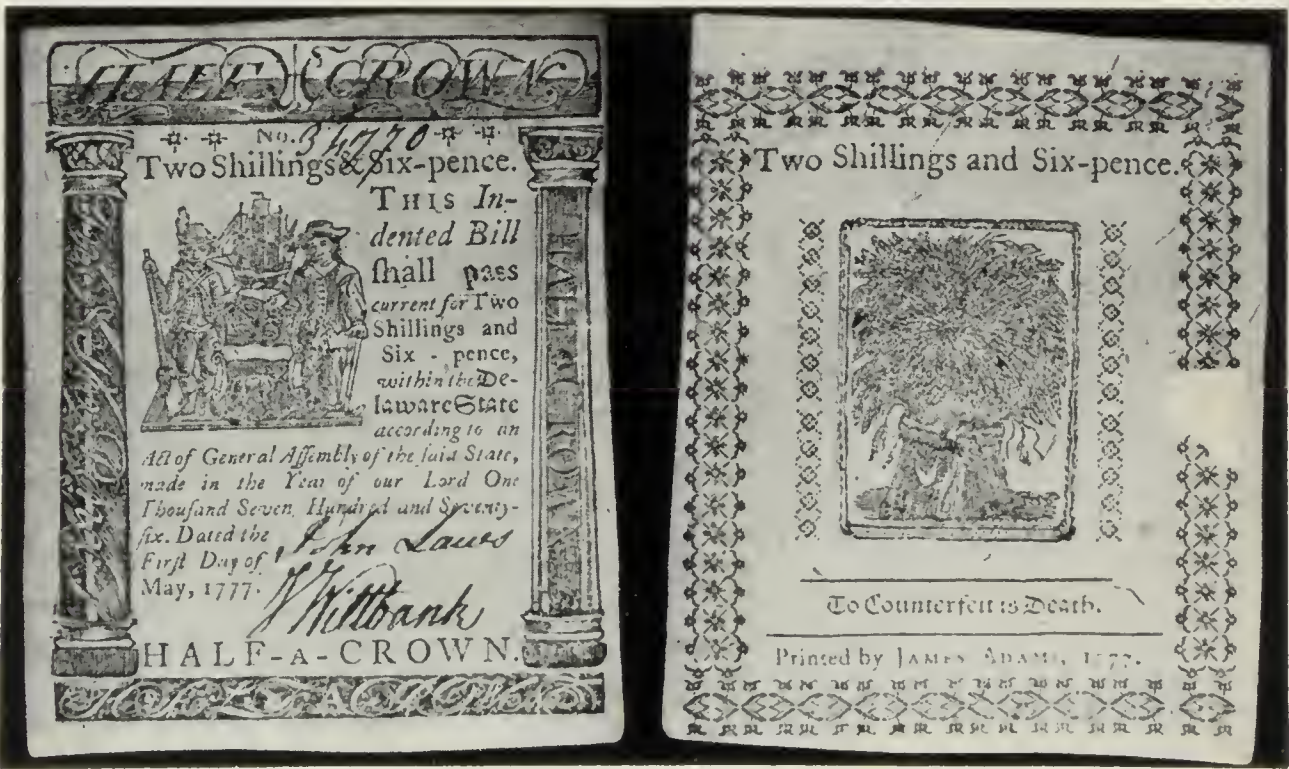 HALF CROWN
No. 34770
Two Shillings & Six-pence.
THIS In-
dented Bill
ſhall pass
current for Two
Shillings and
Six - pence,
within the De-
laware State
according to an
Act of General Aſſembly of the ſaid State,
made in the Year of our Lord One
Thouſand Seven Hundred and Seventy-
ſix. Dated the
Firſt Day of
May, 1777.
John Laws
J Wiltbank
HALF-A-CROWN.
HALF A CROWN
HALF A CROWN
Two Shillings and Six-pence.
To Counterfeit is Death.
Printed by JAMES ADAMS, 1777.